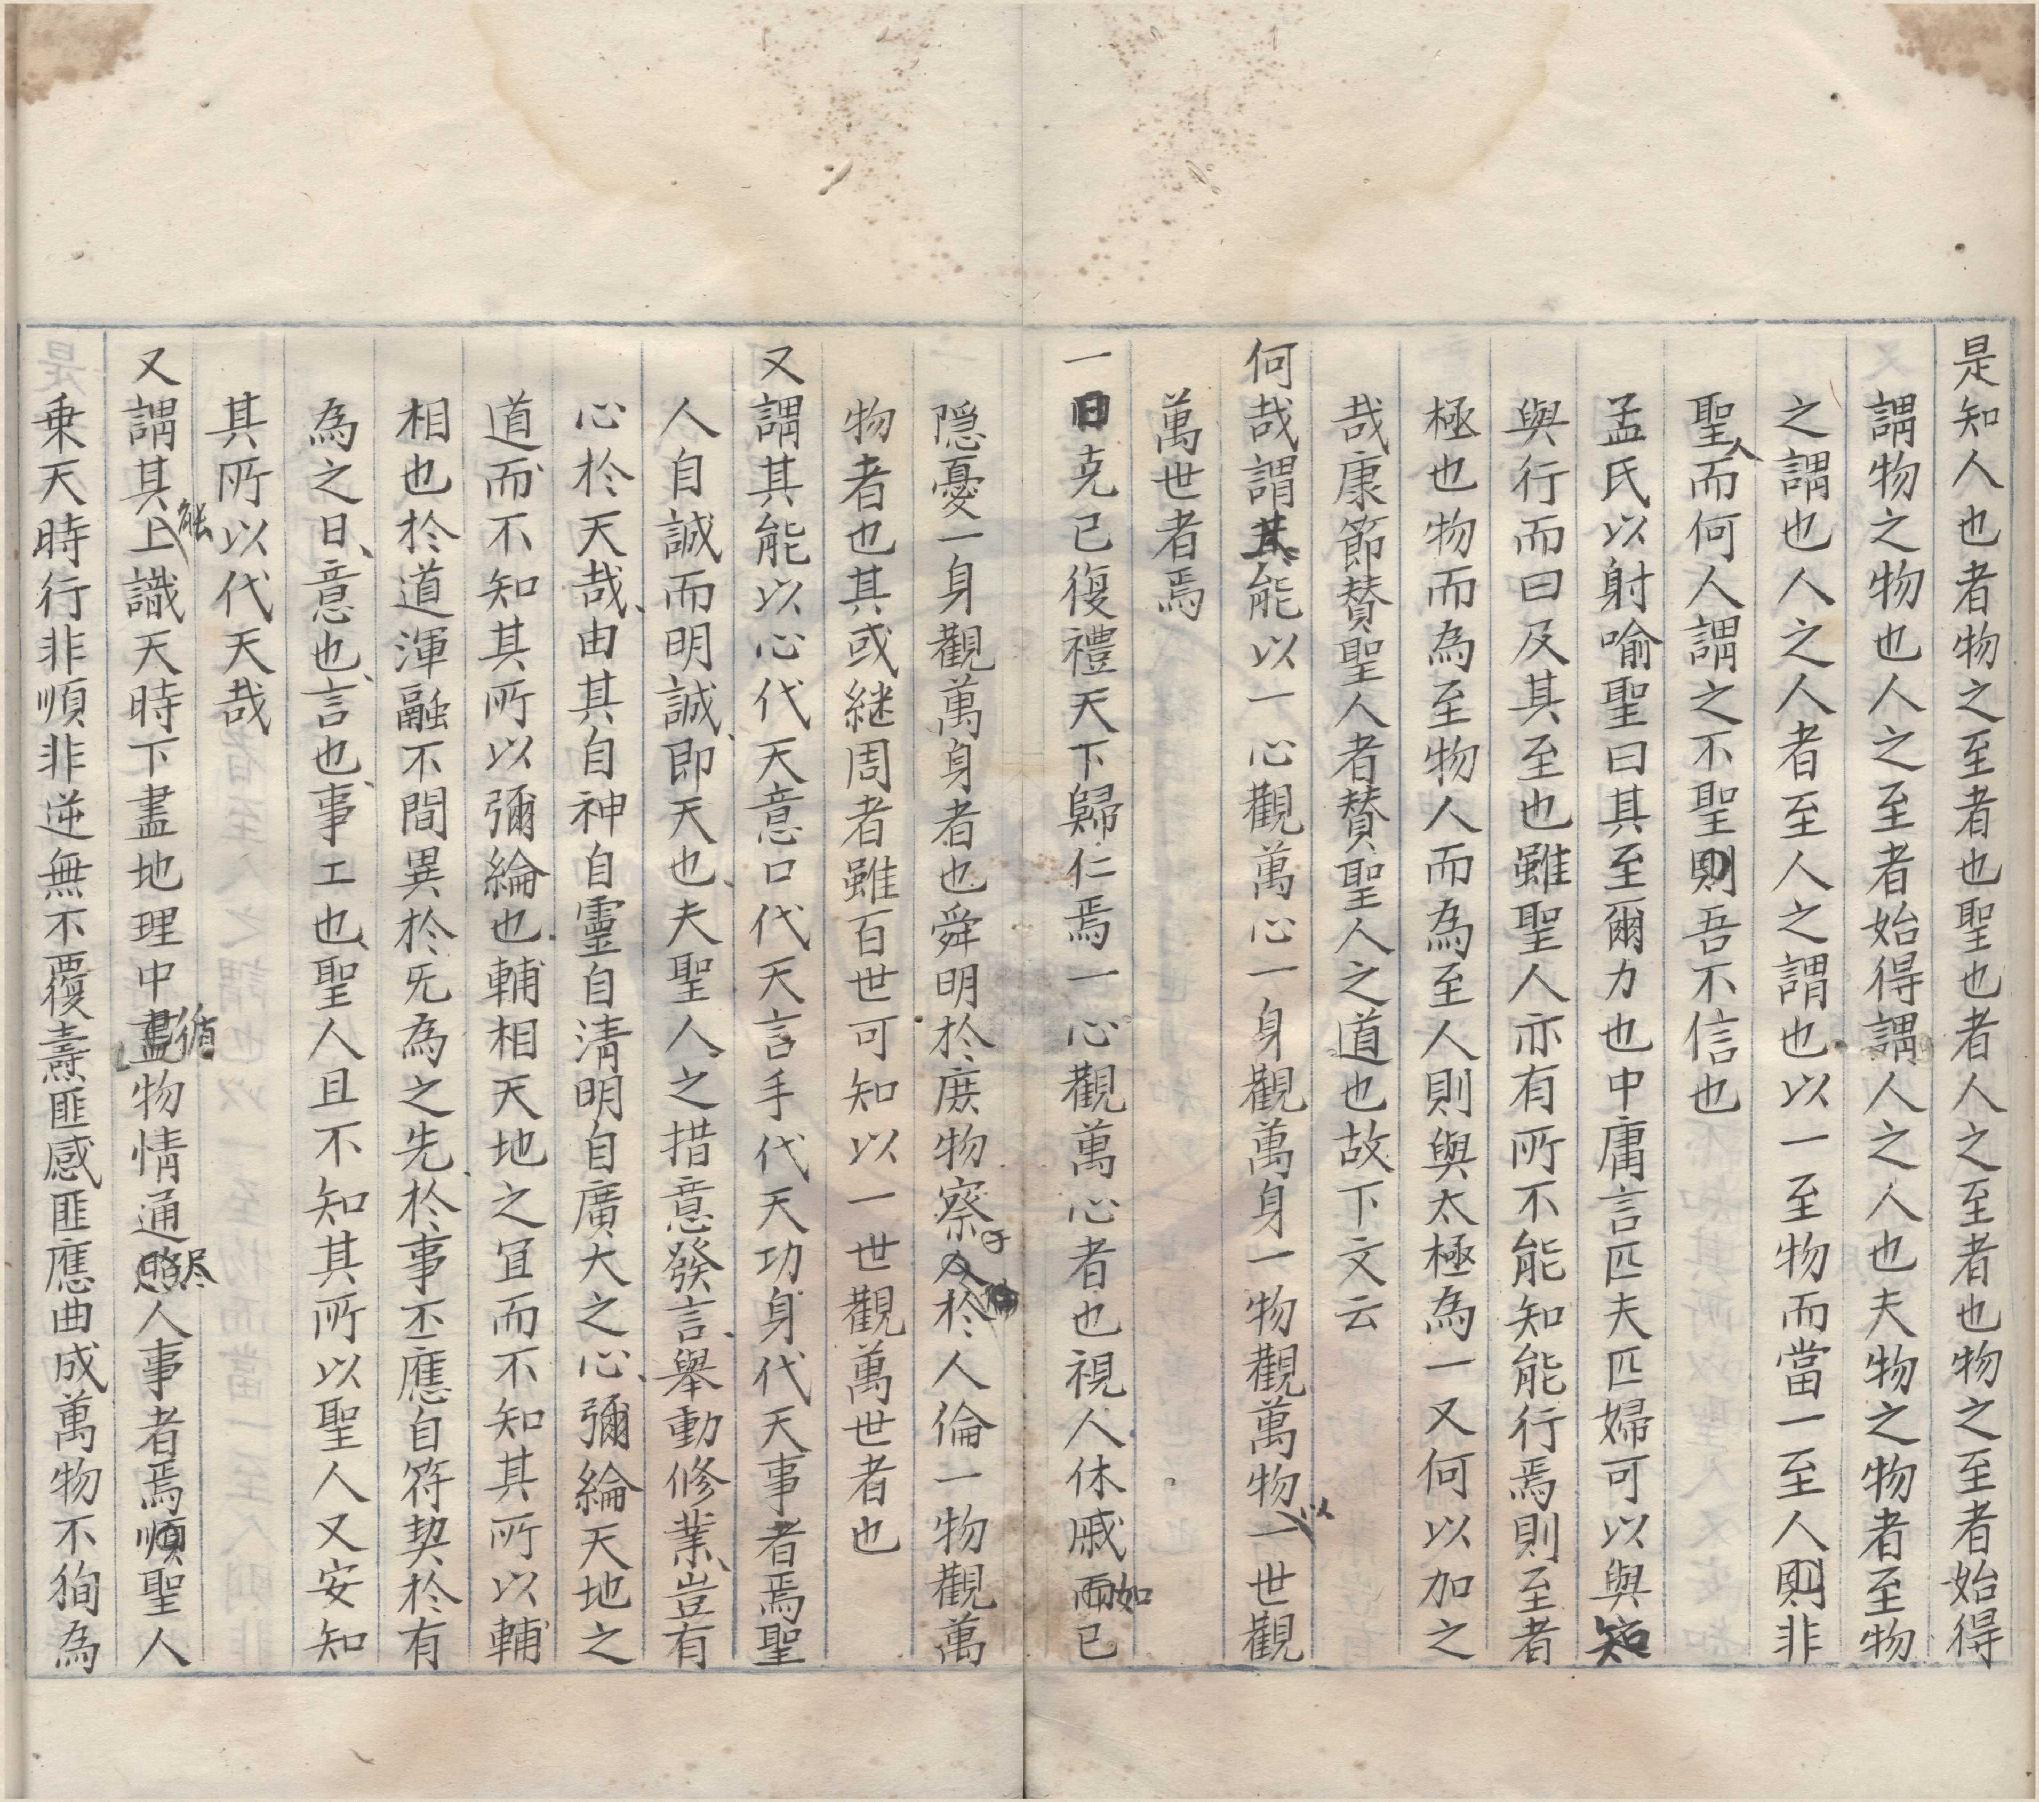 是知人也者物之至者也聖也者人之至者也物之至者始得
謂物之物也人之至者始得謂人之人也夫物之物者至物
之謂也人之人者至人之謂也以一至物而當一至人則非
聖人而何人謂之不聖則吾不信也
孟氏以射喻聖曰其至爾力也中庸言匹夫匹婦可以與知
與行而曰及其至也雖聖人亦有所不能知能行焉則至者
極也物而為至物人而為至人則與太極為一又何以加之
哉康節贊聖人者贊聖人之道也故下文云
何哉謂其能以一心觀萬心一身觀萬身一物觀萬物以一世觀
萬世者焉
一日克已復禮天下歸仁焉一心觀萬心者也視人休戚如已
隠憂一身觀萬身者也舜明於庶物察于人倫一物觀萬
物者也其或継周者雖百世可知以一世觀萬世者也
又謂其能以心代天意口代天言手代天功身代天事者焉聖
人自誠而明誠即天也夫聖人之措意發言舉動修業豈有
心於天哉由其自神自靈自淸明自廣大之心彌綸天地之
道而不知其所以彌綸也輔相天地之宜而不知其所以輔
相也於道渾融不間異於旡為之先於事丕應自符契於有
為之日意也言也事工也聖人且不知其所以聖人又安知
其所以代天哉
又謂其能上識天時下盡地理中循物情通尽人事者焉聖人
乗天時行非順非逆無不覆燾匪感匪應曲成萬物不徇為